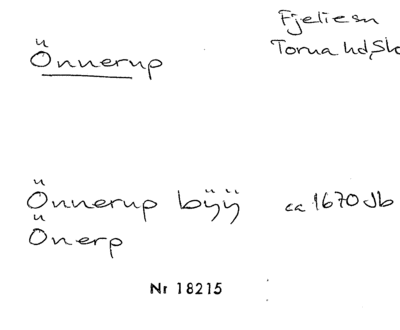 Önnerup
Fjelie sn
Torna hd, Sk
Önnerup bÿÿ ca 1670 Jb
Önerp
Nr 18215